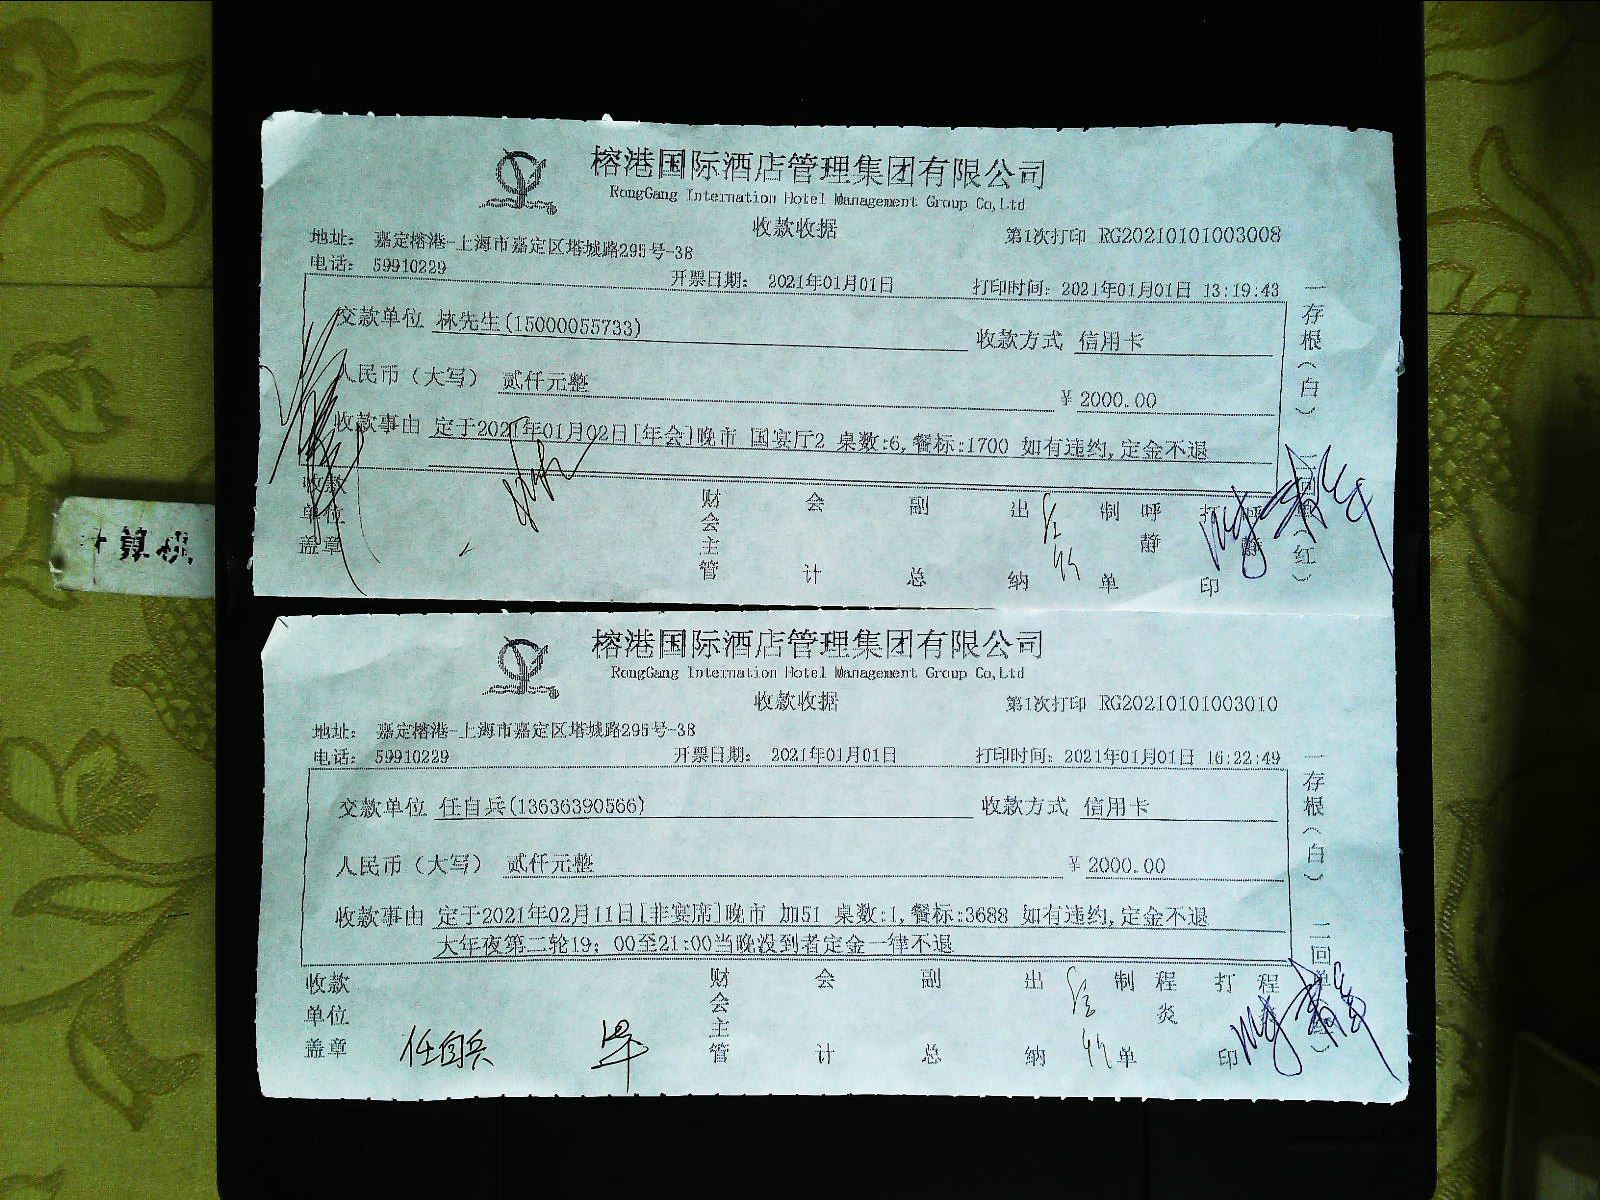 榕港国际酒店管理集团有限公司
RongGang Internation Hotel Management Group Co,Ltd
收款收据
第1次打印 RG20210101003008
地址: 嘉定榕港-上海市嘉定区塔城路295号-38
电话: 59910229
开票日期: 2021年01月01日 打印时间: 2021年01月01日 13:19:43
交款单位 林先生(15000055733) 收款方式 信用卡
人民币(大写) 贰仟元整 ¥ 2000.00
收款事由 定于2021年01月02日[年会]晚市 国宴厅2 桌数:6,餐标:1700 如有违约,定金不退
收款单位盖章 财会主管 会计 副总 出纳 制单 呼静 打印 呼静
一存根(白) 二回单(红)
计算机
榕港国际酒店管理集团有限公司
RongGang Internation Hotel Management Group Co,Ltd
收款收据
第1次打印 RG20210101003010
地址: 嘉定榕港-上海市嘉定区塔城路295号-38
电话: 59910229 开票日期: 2021年01月01日 打印时间: 2021年01月01日 16:22:49
交款单位 任自兵(13636390566) 收款方式 信用卡
人民币(大写) 贰仟元整 ¥ 2000.00
收款事由 定于2021年02月11日[非宴席]晚市 加51 桌数:1,餐标:3688 如有违约,定金不退
大年夜第二轮19; 00至21:00当晚没到者定金一律不退
收款单位盖章 财会主管 会计 副总 出纳 制单 程炎 打印 程
任自兵
一存根(白) 二回单